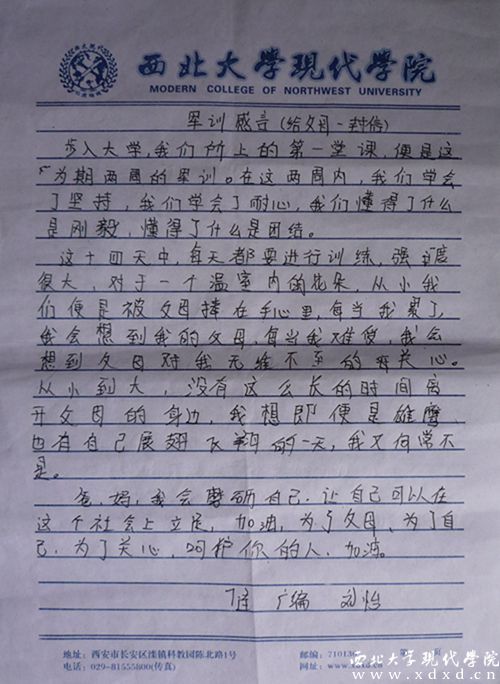 西北大学现代学院
MODERN COLLEGE OF NORTHWEST UNIVERSITY
军训感言(给父母一封信)
步入大学,我们所上的第一堂课,便是这
为期两周的军训。在这两周内,我们学会
了坚持,我们学会了耐心,我们懂得了什么
是刚毅,懂得了什么是团结。
这十四天中,每天都要进行训练,强度
很大,对于一个温室内的花朵,从小我
们便是被父母捧在手心里,每当我累了,
我会想到我的父母,每当我难受,我会
想到父母对我无维不至的关心。
从小到大,没有这么长的时间离
开父母的身边,我想即便是雄鹰
也有自己展翅飞翔的一天,我又何常不
是。
爸妈,我会磨砺自己,让自己可以在
这个社会上立足,加油,为了父母、为了自
己,为了关心,呵护你的人,加油。
广编 刘怡
地址:西安市长安区滦镇科教园陈北路1号
邮编:710130
第 页
电话:029-81555800(传真)
网址:www.xdxd.cn
西北大学现代学院
www.xdxd.cn